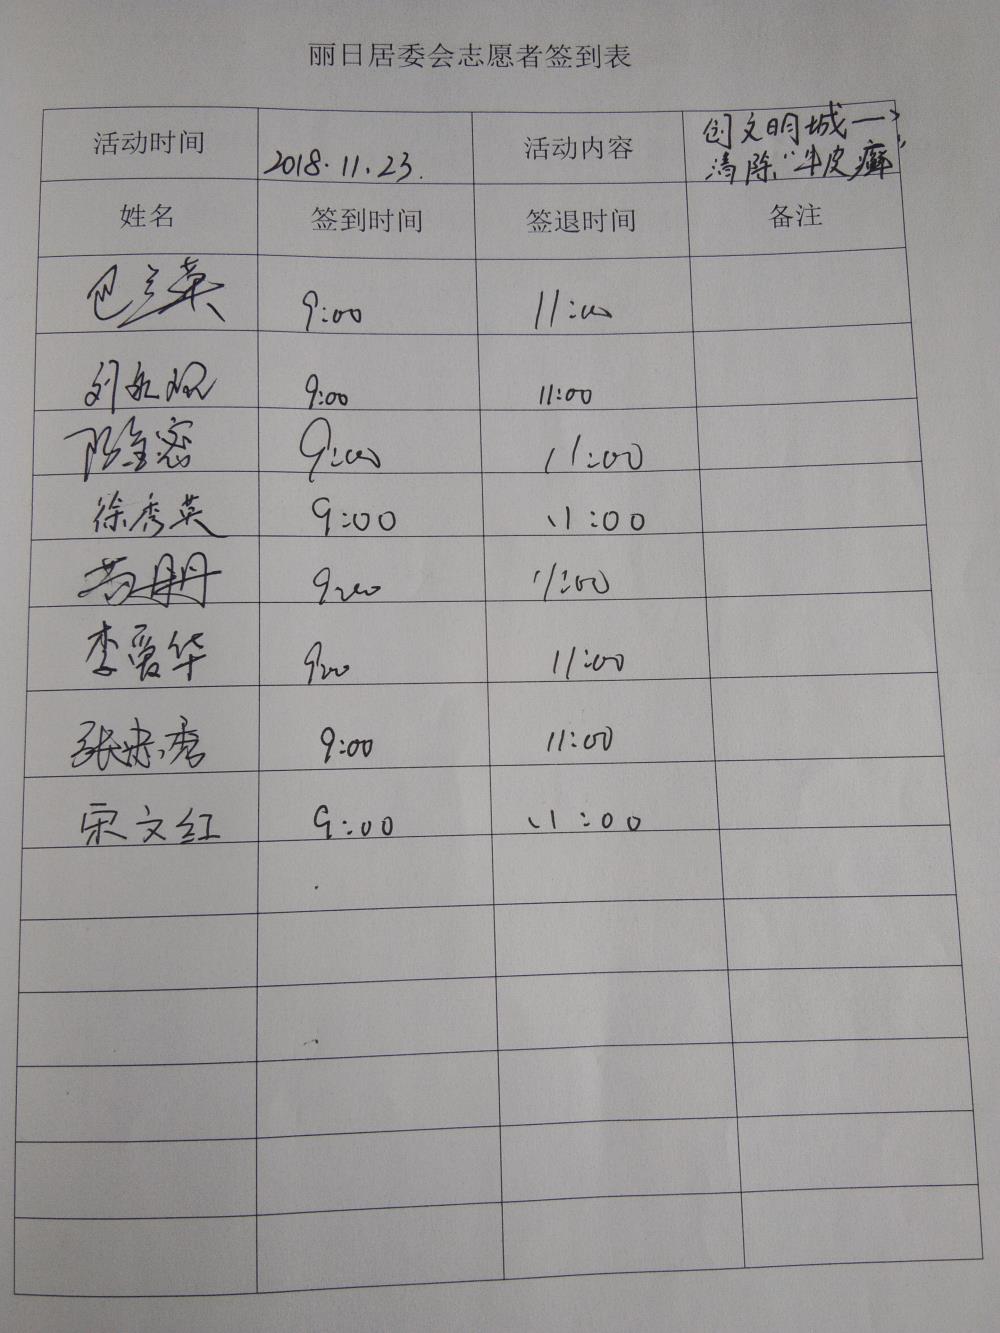 丽日居委会志愿者签到表
活动时间 2018.11.23. 活动内容 创文明城一
清除“牛皮癣”
姓名 签到时间 签退时间 备注
9:00 11:00
刘 9:00 11:00
9:00 11:00
徐秀英 9:00 11:00
9:00 11:00
李爱华 9:00 11:00
张 秀 9:00 11:00
宋文红 9:00 11:00